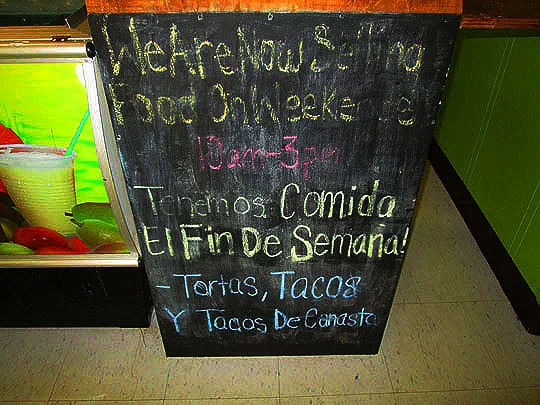 We Are Now Selling
Food On Weekends!
10am-3pm
Tenemos Comida
El Fin De Semana!
- Tortas, Tacos
Y Tacos De Canasta